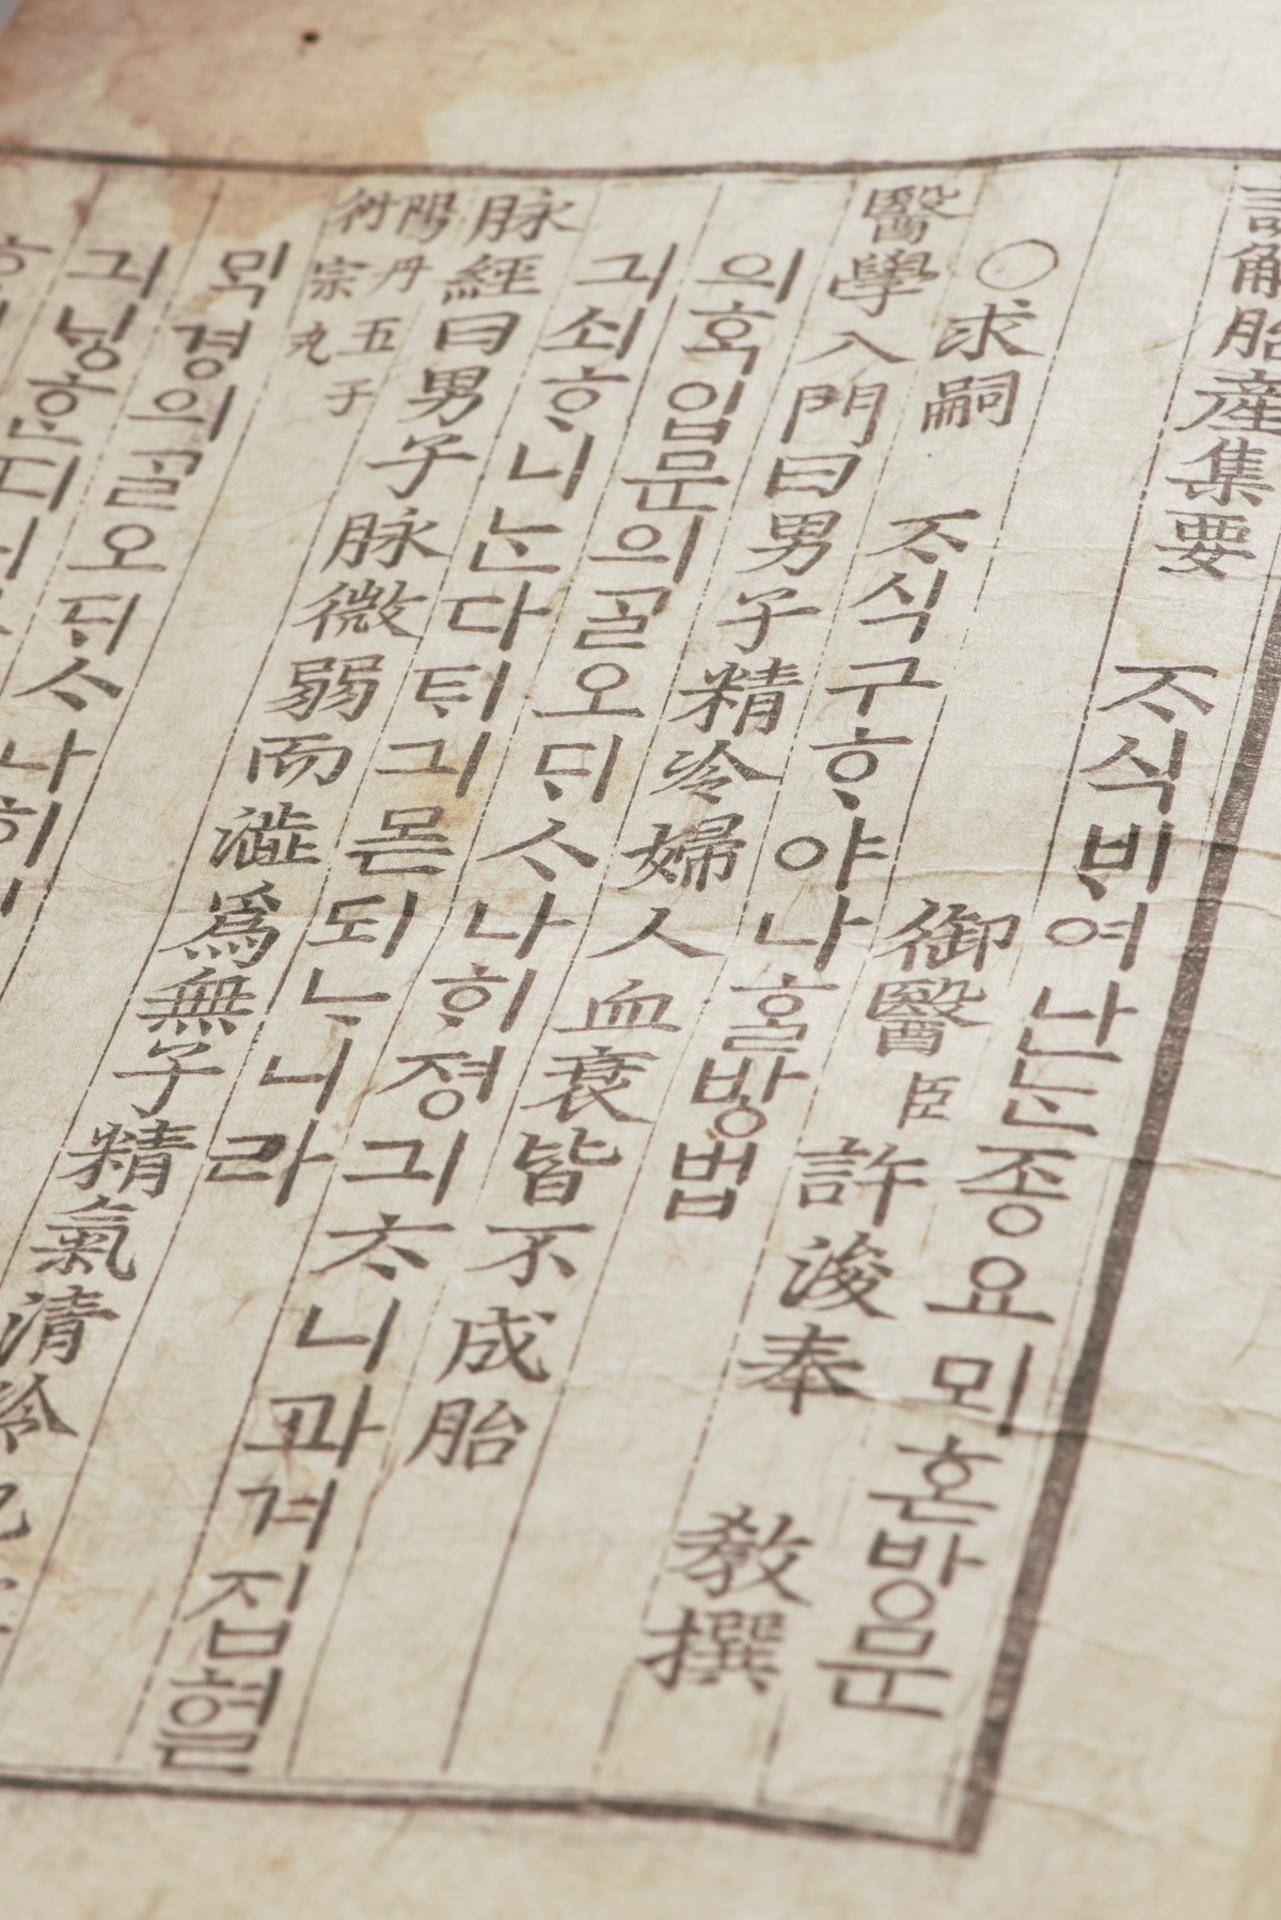 諺解胎産集要 ᄌᆞ식ᄇᆡ여난ᄂᆞᆫ종요뫼혼방문
御醫臣許浚奉 敎撰
○求嗣 ᄌᆞ식구ᄒᆞ야나홀방법
醫學入門曰男子精冷婦人血衰皆不成胎
의ᄒᆞᆨ입문의ᄀᆞᆯ오ᄃᆡᄉᆞ나ᄒᆡ졍긔ᄎᆞ니과겨집혈
긔쇠ᄒᆞ니ᄂᆞᆫ다ᄐᆡ긔몯되ᄂᆞ니라
脉經曰男子脉微弱而澁爲無子精氣清冷
陽丹五子
衍宗丸
ᄆᆡᆨ경의ᄀᆞᆯ오ᄃᆡᄉᆞ나ᄒᆡ
긔ᄂᆡᆼᄒᆞᆫ디